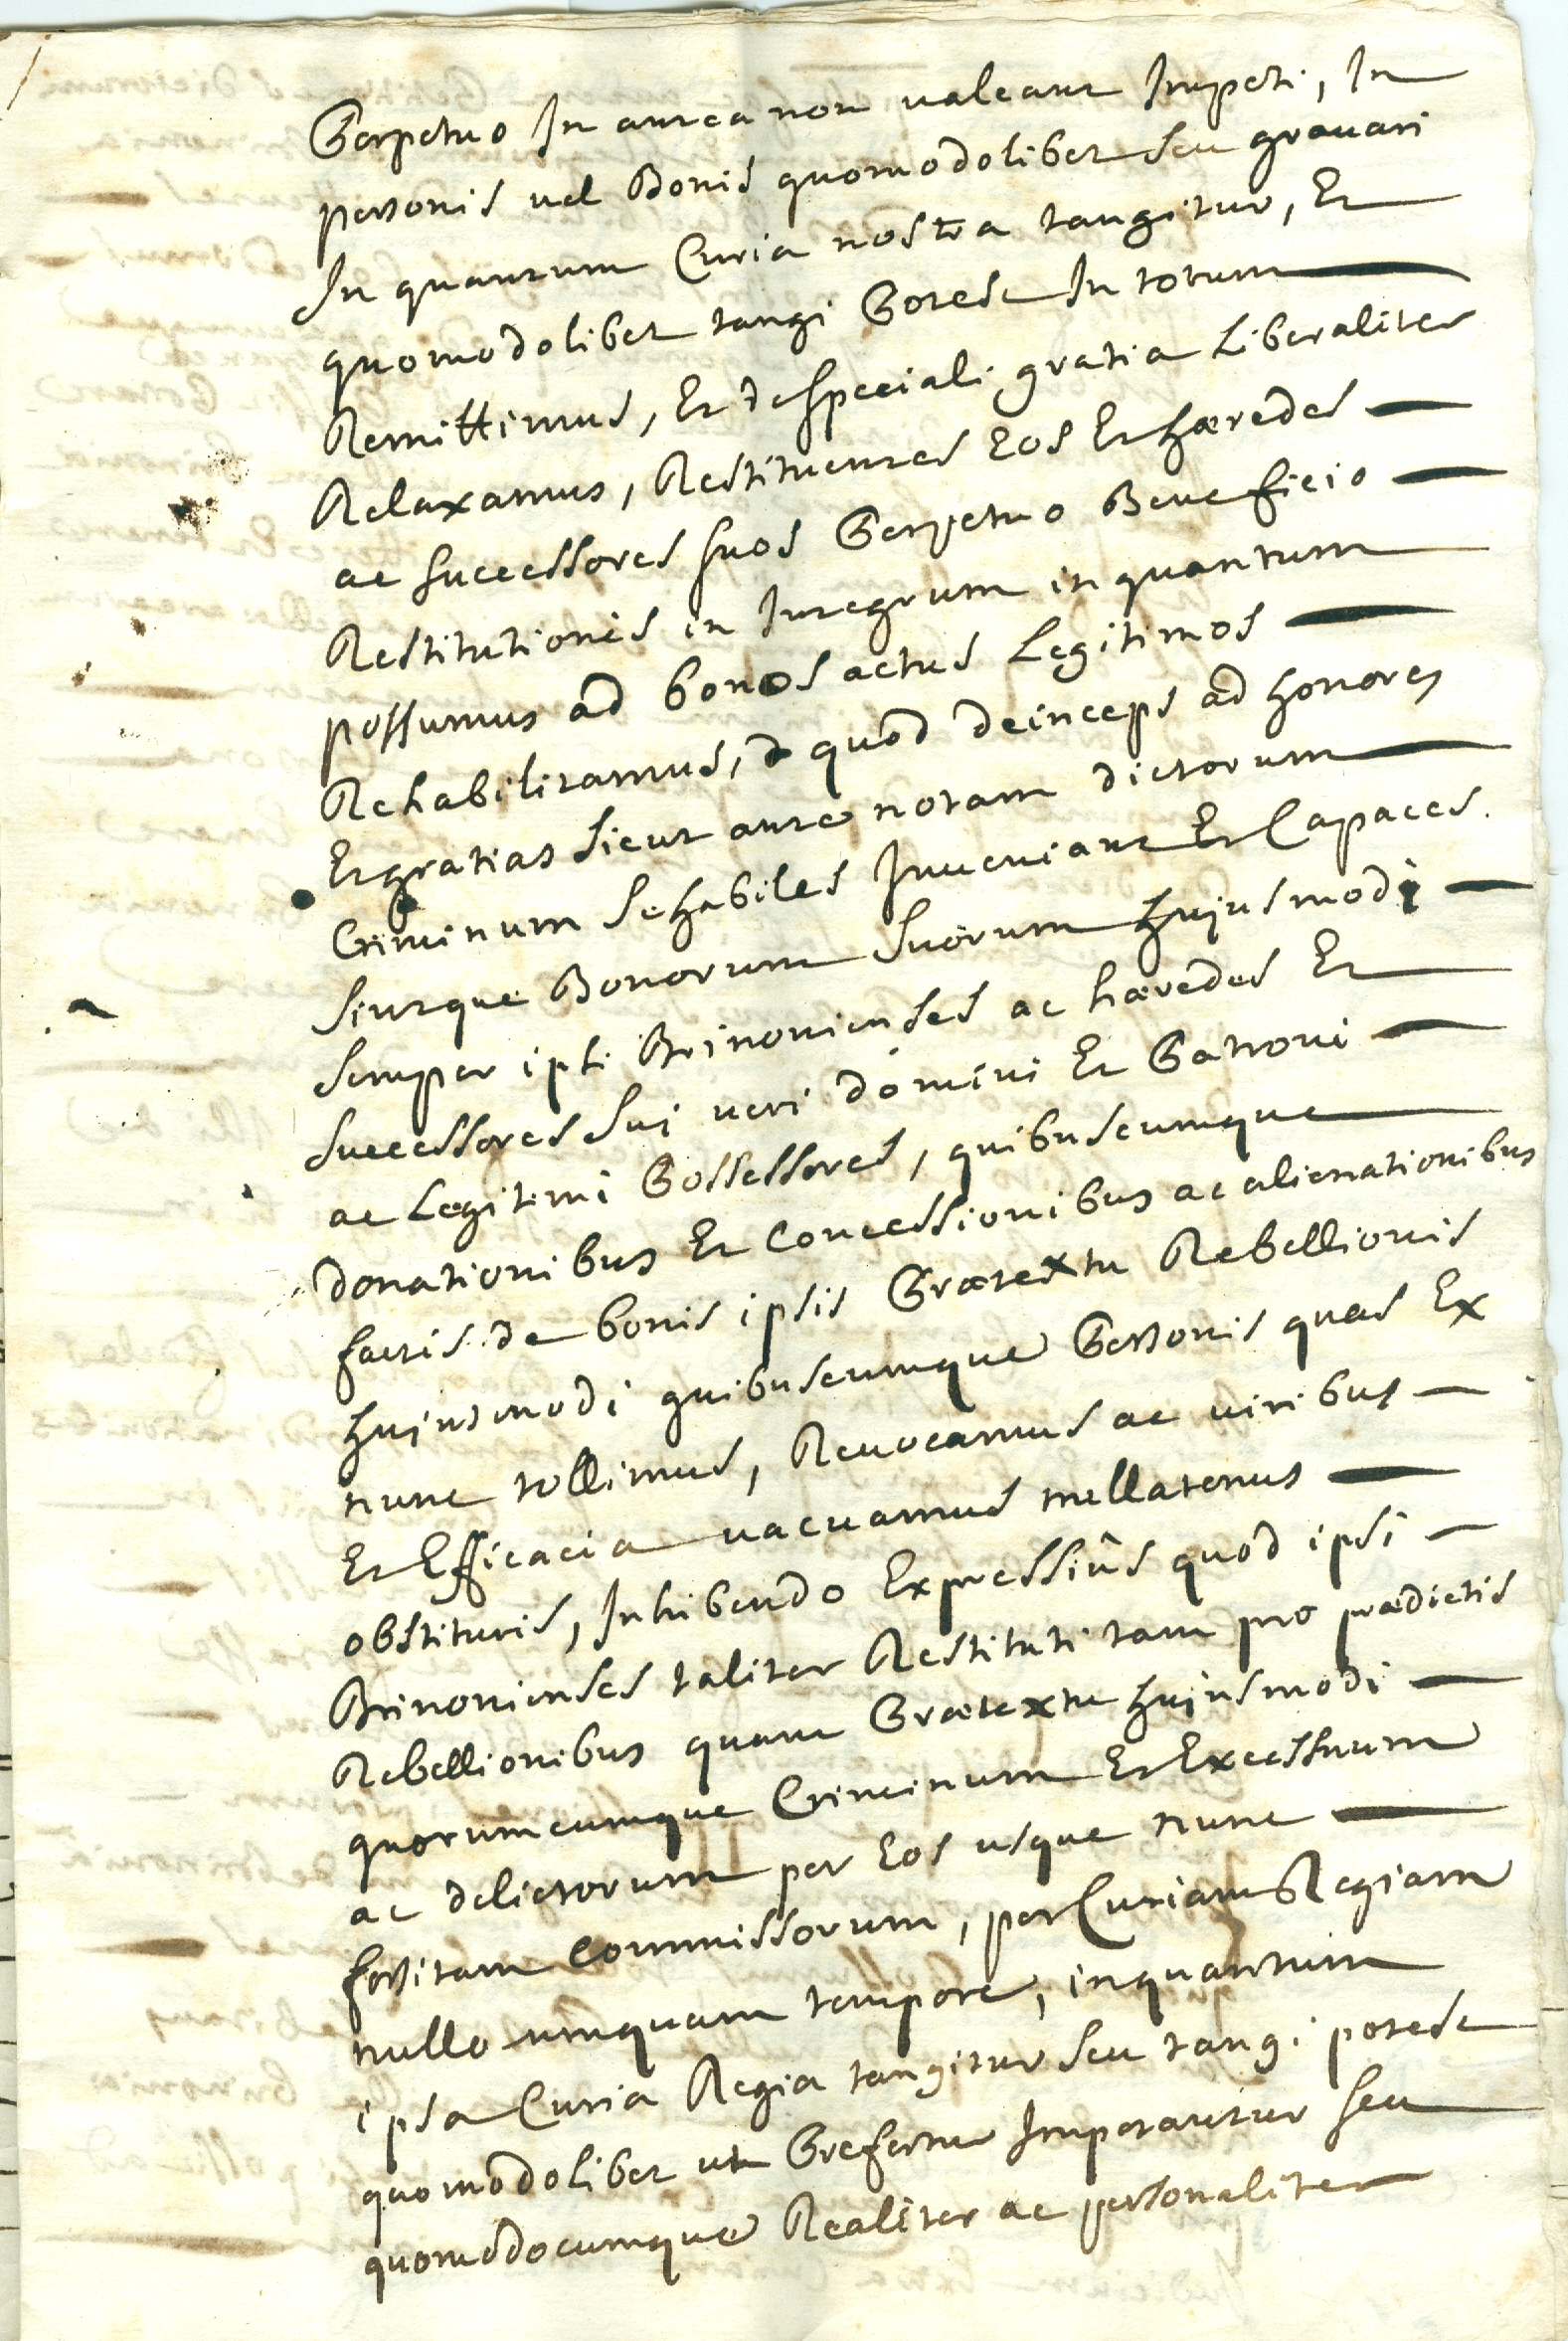 Perpetuo In antea non valeant Impeti, In
personis vel Bonis quomodolibet seu gravari
In quantum Curia nostra tangitur, Et
quomodolibet tangi Potest In totum
Remittimus, Et de speciali gratia Liberaliter
Relaxamus, Restituentes Eos Et hæredes
ac successores suos Perpetuo Beneficio
Restitutionis in Integrum in quantum
possumus ad bonos actus Legitimos
Rehabilitamus, quod deinceps ad honores
Et gratias sicut ante notam dictorum
Criminum se habiles Inveniant Et Capaces.
Sintque Bonorum suorum hujusmodi
semper ipsi Brinonienses ac hæredes Et
successores sui veri domini Et Patroni
ac Legitimi Possessores, quibuscumque
donationibus Et Concessionibus ac alienationibus
factis de bonis ipsis Prætextu Rebellionis
hujusmodi quibuscumque Personis quas Ex
nunc tollimus, Revocamus ac viribus
Et Efficacia vacuamus nullatenus
obstituris, Inhibendo Expressiûs quòd ipsi
Brinonienses taliter Restituti tam pro prædictis
Rebellionibus quam Prætextu hujusmodi
quorumcumque Criminum Et Excessuum
ac delictorum per Eos usque nunc
forsitam commissorum, per Curiam Regiam
nullo umquam tempore, inquantum
ipsa Curia Regia tangitur seu tangi potest
quomodolibet ut Prefertur Impetantur seu
quomodocumque Realiter ac personaliter